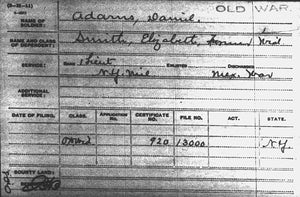 (3-25-11)
OLD WAR.
NAME OF SOLDIER: Adams, Daniel.
NAME AND CLASS OF DEPENDENT: Smith, Elizabeth, Former Wid
SERVICE: 1 Lieut ENLISTED DISCHARGED
N.Y. Mil Mex. War
ADDITIONAL SERVICE:
DATE OF FILING. CLASS. APPLICATION NO. CERTIFICATE NO. FILE NO. ACT. STATE.
920 13000 N.Y.
BOUNTY LAND: